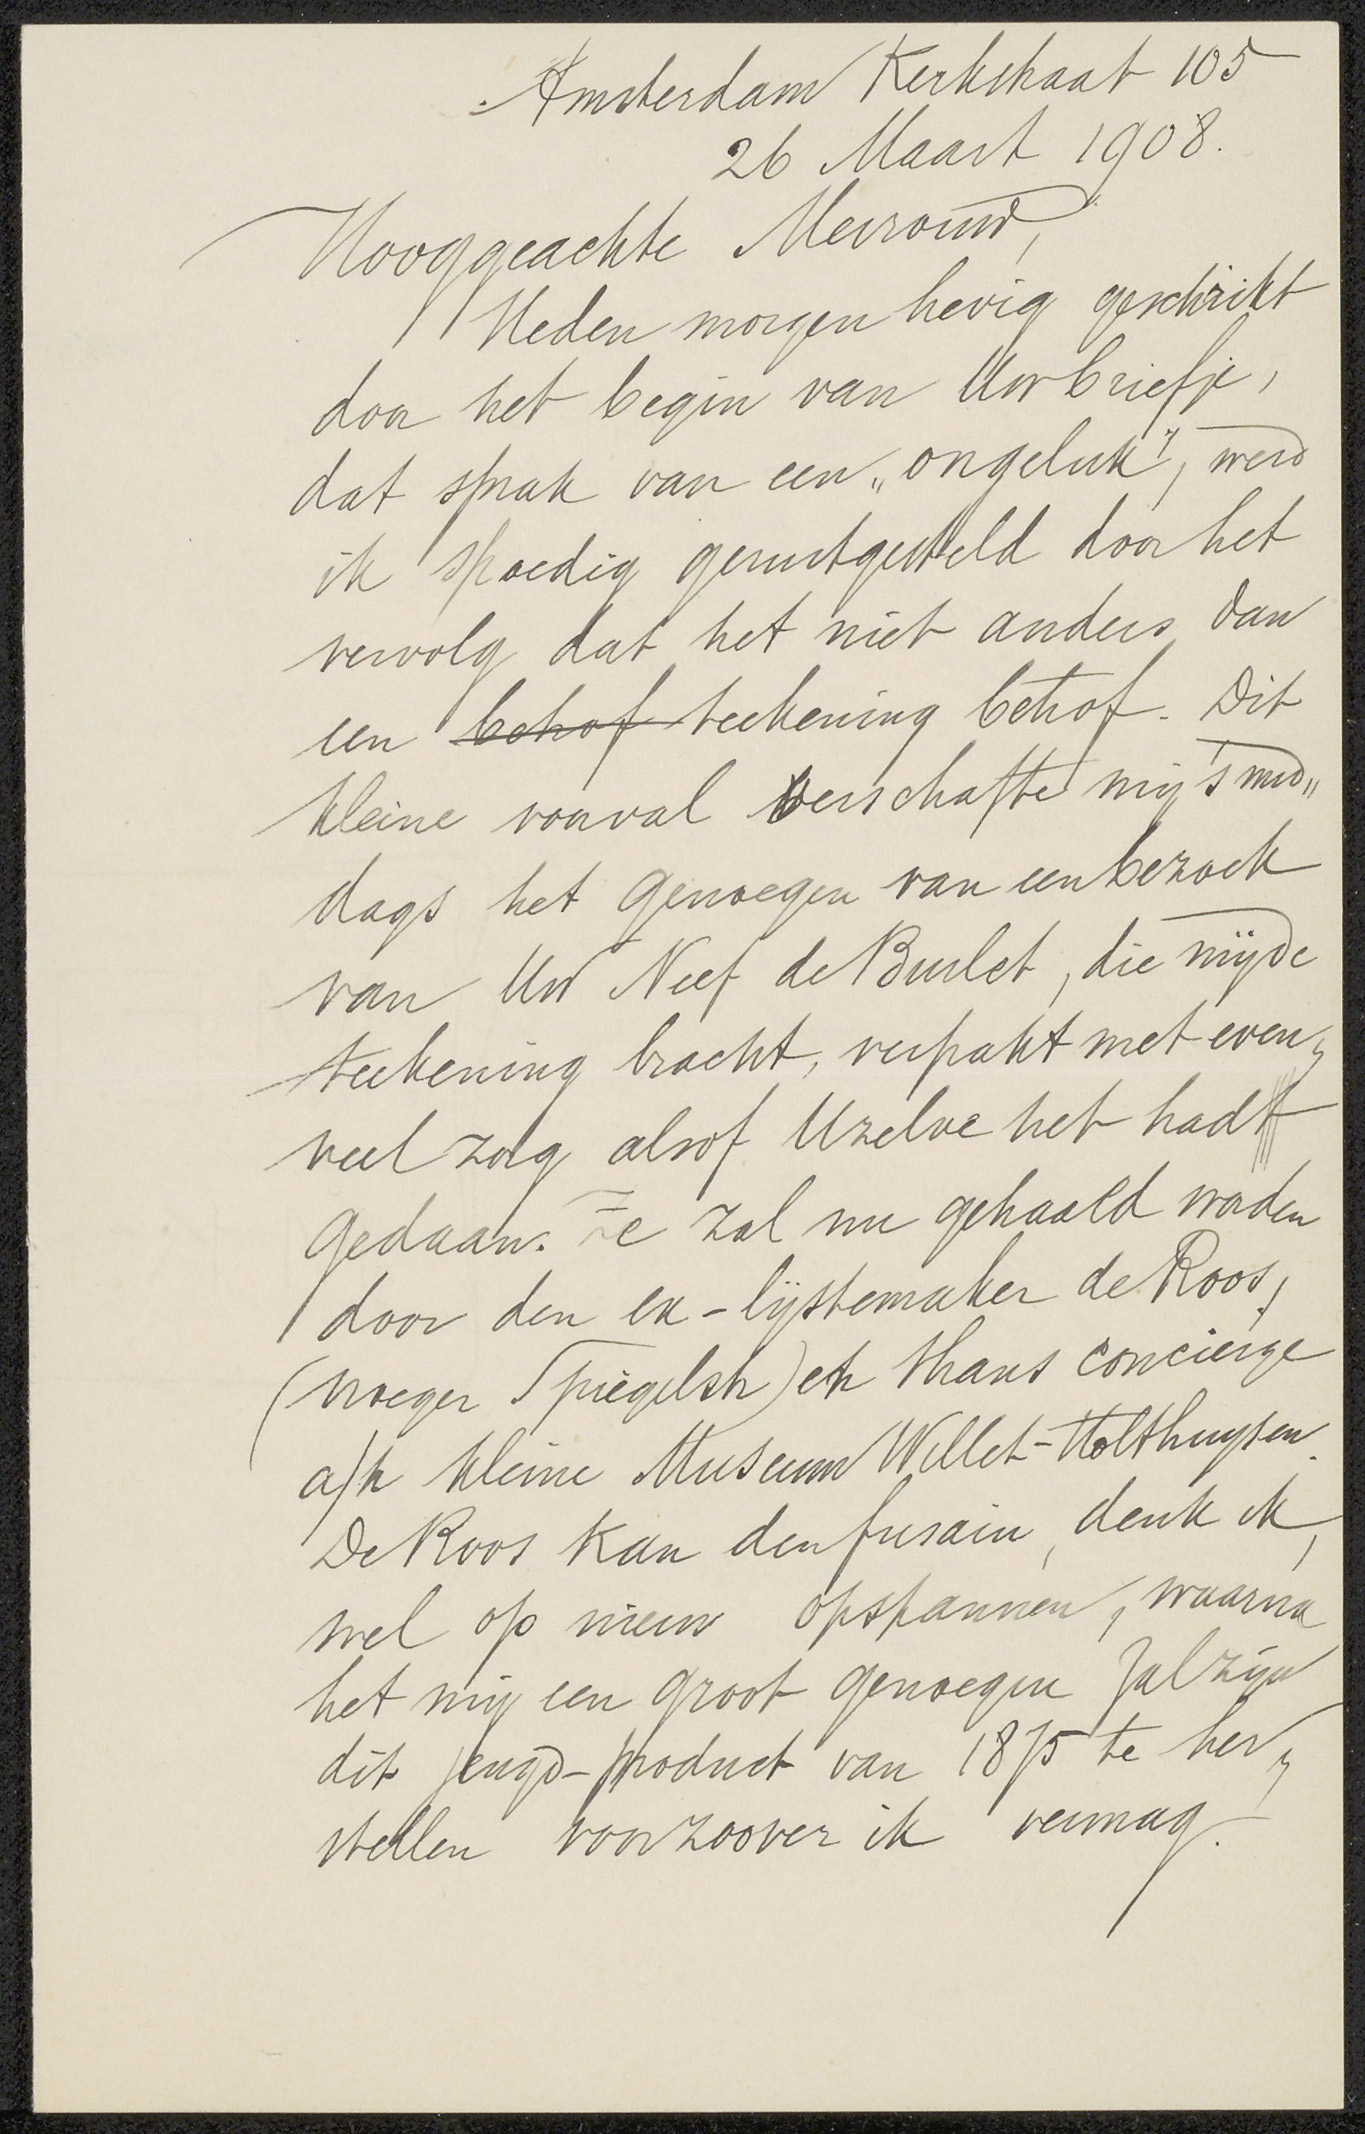 Amsterdam Kerkstraat 105
26 Maart 1908.
Hooggeachte Mevrouw,
Heden morgen hevig geschrikt
door het begin van Uw briefje,
dat sprak van een „ongeluk", werd
ik spoedig gerustgesteld door het
vervolg dat het niet anders dan
een betrof teekening betrof. Dit
kleine voorval verschafte mij 's mid„
dags het genoegen van een bezoek
van Uw Neef de Burlet, die mij de
teekening bracht, verpakt met even„
veel zorg alsof Uzelve het hadt
gedaan. Ze zal nu gehaald worden
door den ex-lijstemaker de Roos,
(vroeger Spiegelstr) en thans concierge
a/h kleine Museum Willet-Holthuysen.
De Roos kan den fusain, denk ik,
wel op nieuw opspannen, waarna
het mij een groot genoegen zal zijn
dit jeugd-product van 1875 te her„
stellen voor zoover ik vermag.